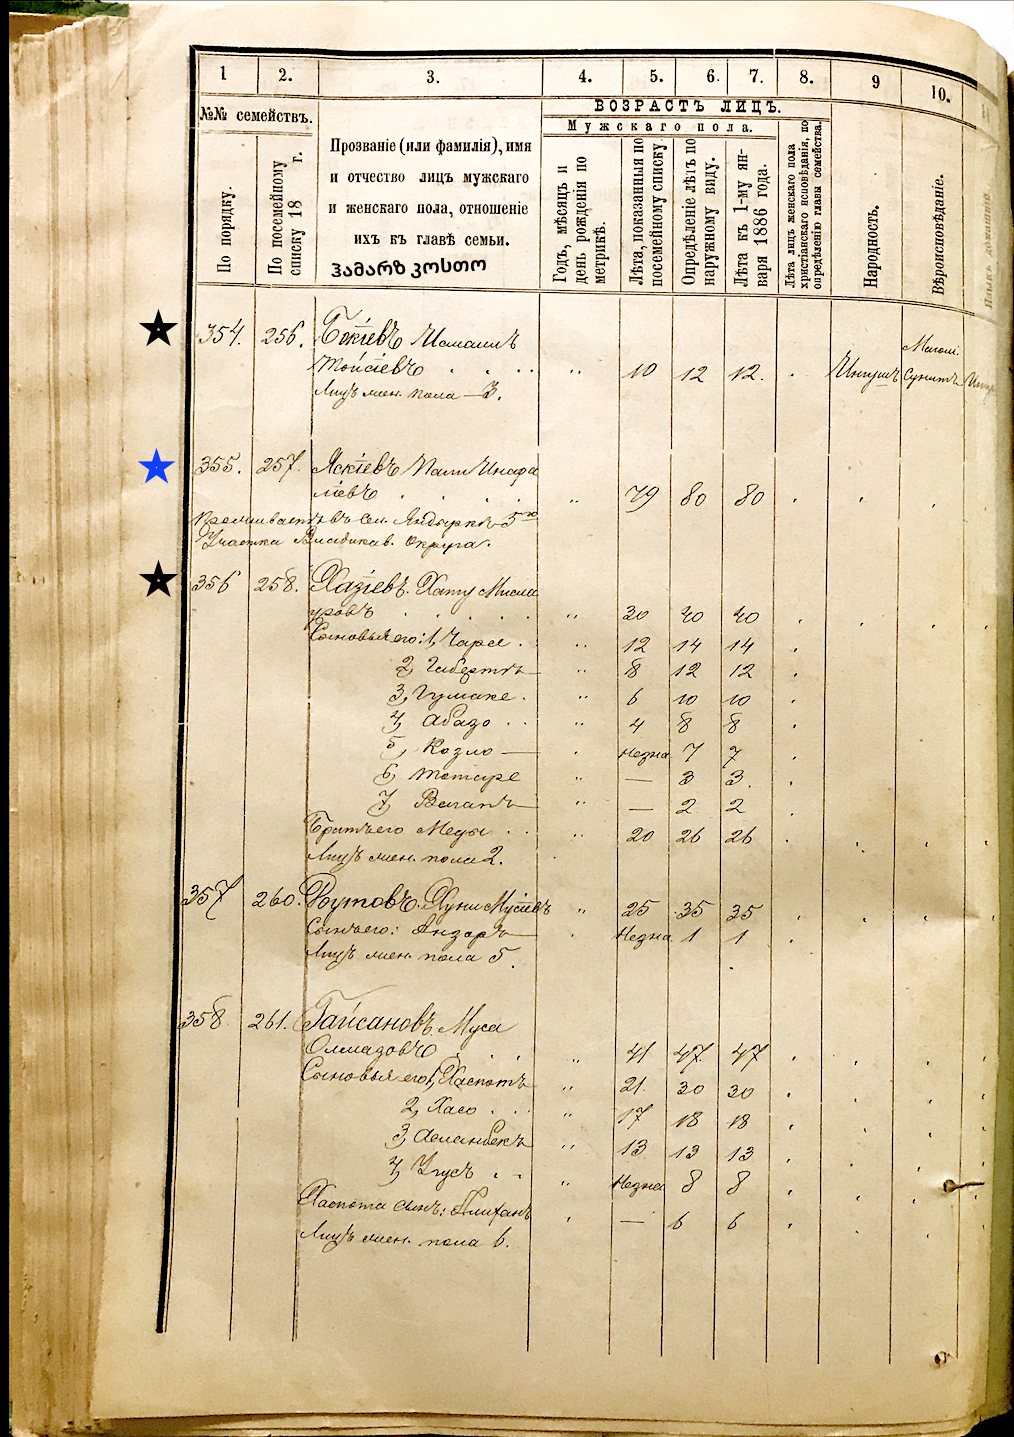 1 2. 3. 4. 5. 6. 7. 8. 9 10.
№№ семействъ.
По порядку.
По посемейному списку 18 г.
Прозваніе (или фамилія), имя
и отчество лицъ мужскаго
и женскаго пола, отношеніе
ихъ къ главѣ семьи.
ჰამარზ კოსთო
ВОЗРАСТЪ ЛИЦЪ.
Мужскаго пола.
Годъ, мѣсяцъ и
день рожденія по
метрикѣ.
Лѣта, показанныя по
посемейному списку.
Опредѣленіе лѣтъ по
наружному виду.
Лѣта къ 1-му ян-
варя 1886 года.
Лѣта лицъ женскаго пола
христіанскаго исповѣданія, по
опредѣленію главы семейства.
Народность.
Вѣроисповѣданіе.
354. 256. Бекіевъ Исмаилъ
Мойсіевъ 10 12 12. Ингушъ Сунитъ
Лицъ жен. пола — 3.
355. 257. Яскіевъ
ліевъ 79 80 80
Проживаетъ въ сел. Яндырка 5го
Участка Владикав. Округа.
356 258. Хазіевъ. Хату
уровъ 30 40 40
Сыновья его: 1, Чарса 12 14 14
2, 8 12 12
3, 6 10 10
4, Абадо 4 8 8
5, Козло — Незна 7 7
6, — 3 3.
7, Ваганъ — 2 2
Братъ его 20 26 26
Лицъ жен. пола 2.
357 260. Хуни Мусіевъ 25 35 35
Сынъ его: Анзоръ Незна 1 1
Лицъ жен. пола 5.
358 261. Гайсановъ. Муса
Олмазовъ 41 47 47
Сыновья его: 1, Хаспотъ 21. 30 30
2, Хасо 17 18 18
3, Асланбекъ 13 13 13
4, Незна 8 8
Хаспота сынъ: Алиханъ — 6 6
Лицъ жен. пола 6.